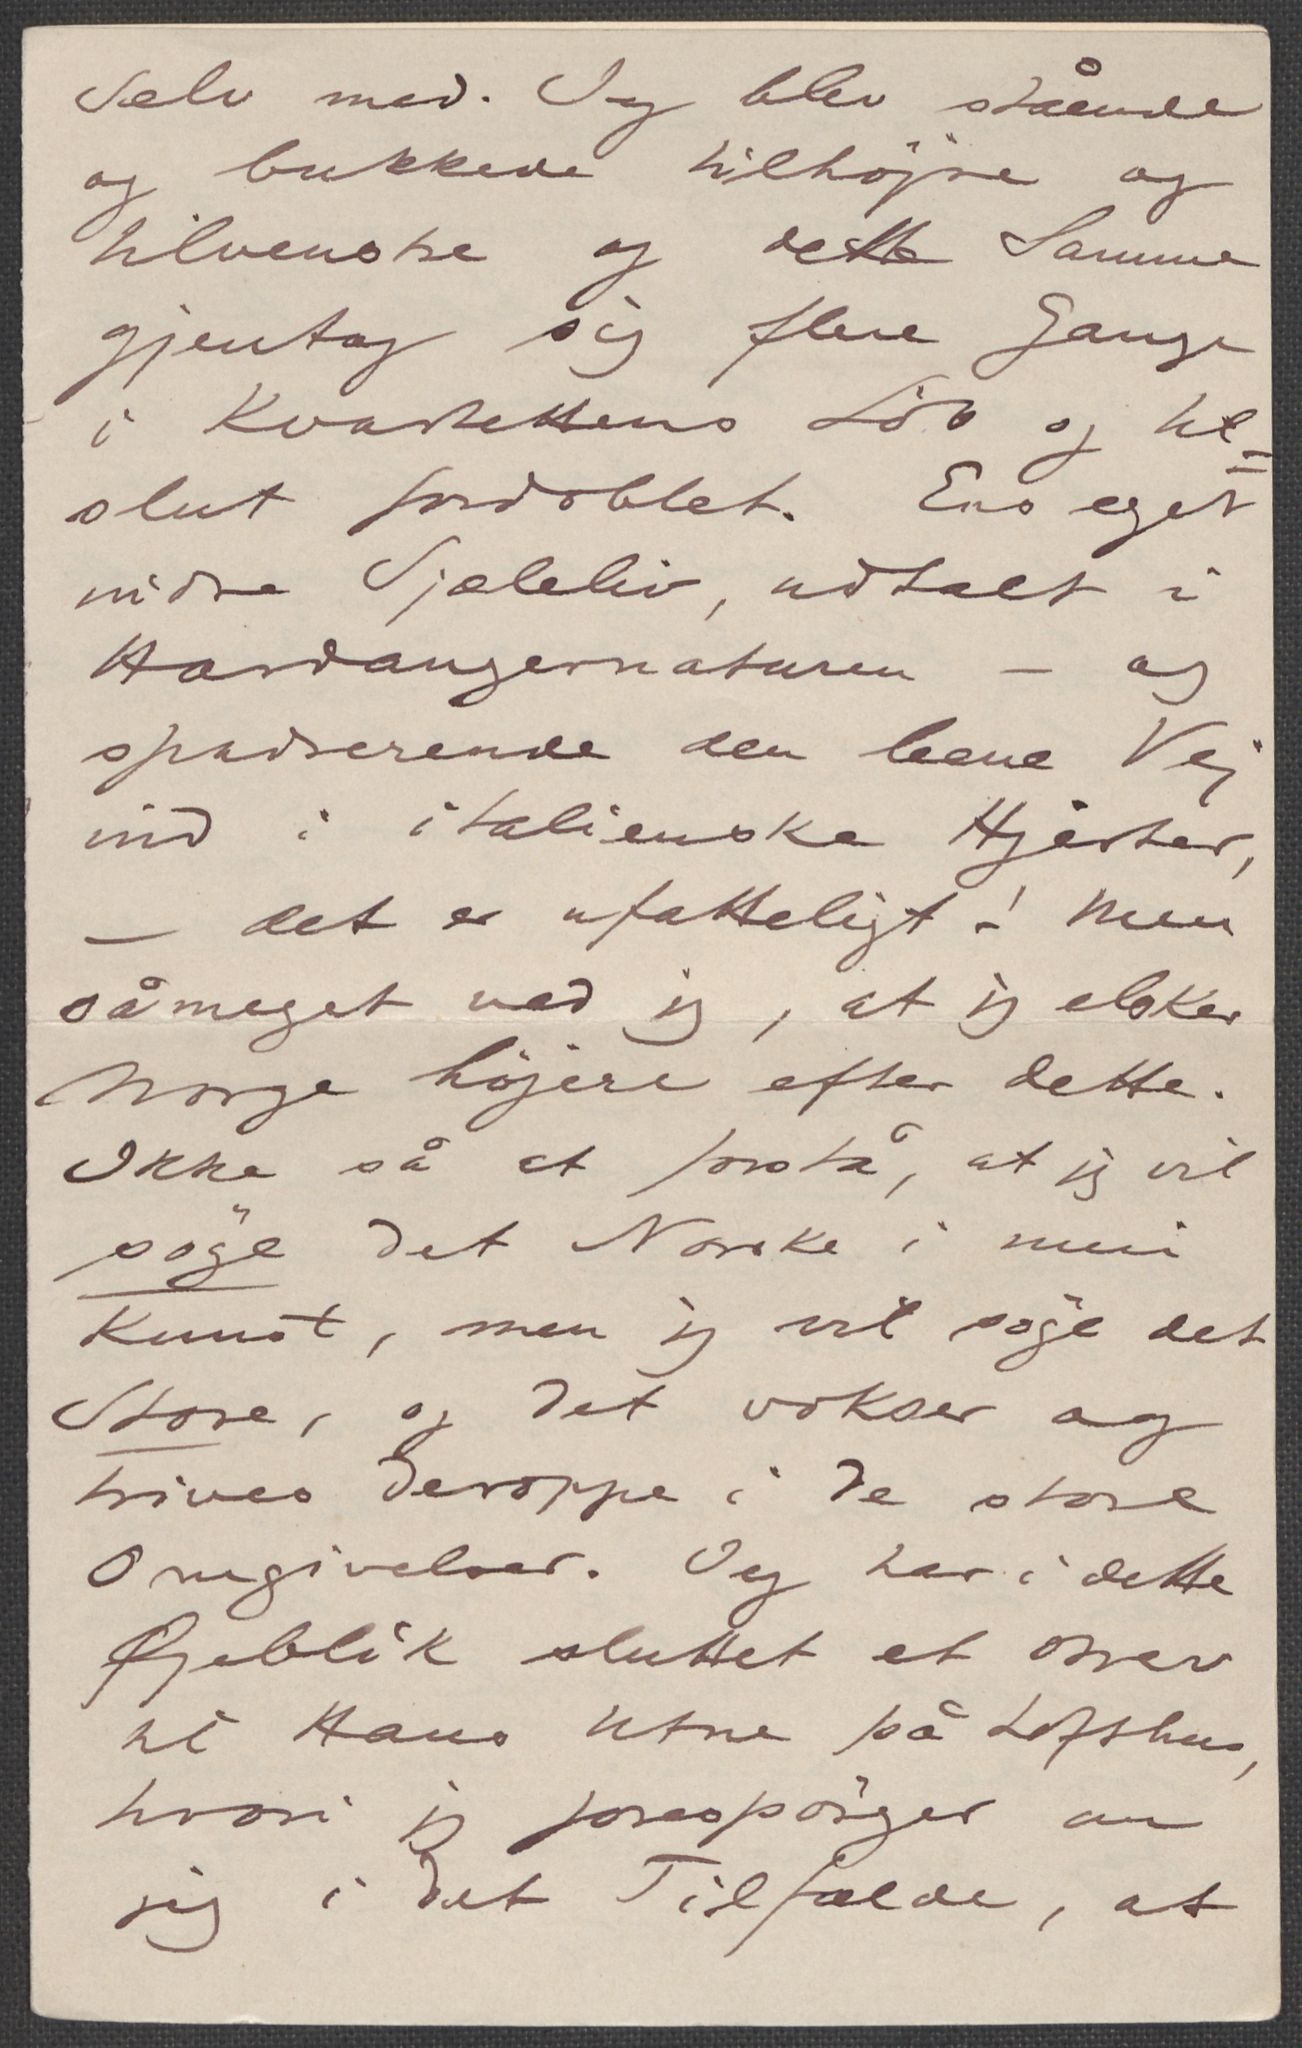 Selv med. Jeg blev stående
og bukkede tilhöjre og
tilvenstre og dette Samme
gjentog sig flere Gange
i Kvartettens Löb og til=
slut fordoblet. Ens eget
indre Sjæleliv, udtalt i
Hardangernaturen – og
spadserende den lene Vej
ind i italienske Hjerter,
– det er ufatteligt! Men
såmeget ved jeg, at jeg elsker
Norge höjere efter dette.
Ikke så at forstå, at jeg vil
söge det Norske i min
Kunst, men jeg vil söge det
Store, og det vokser og
trives deroppe i de store
Omgivelser. Jeg har i dette
Øjeblik sluttet et Brev
til Hans Utne på Lofthus,
hvori jeg forespörger om
jeg i det Tilfælde, at